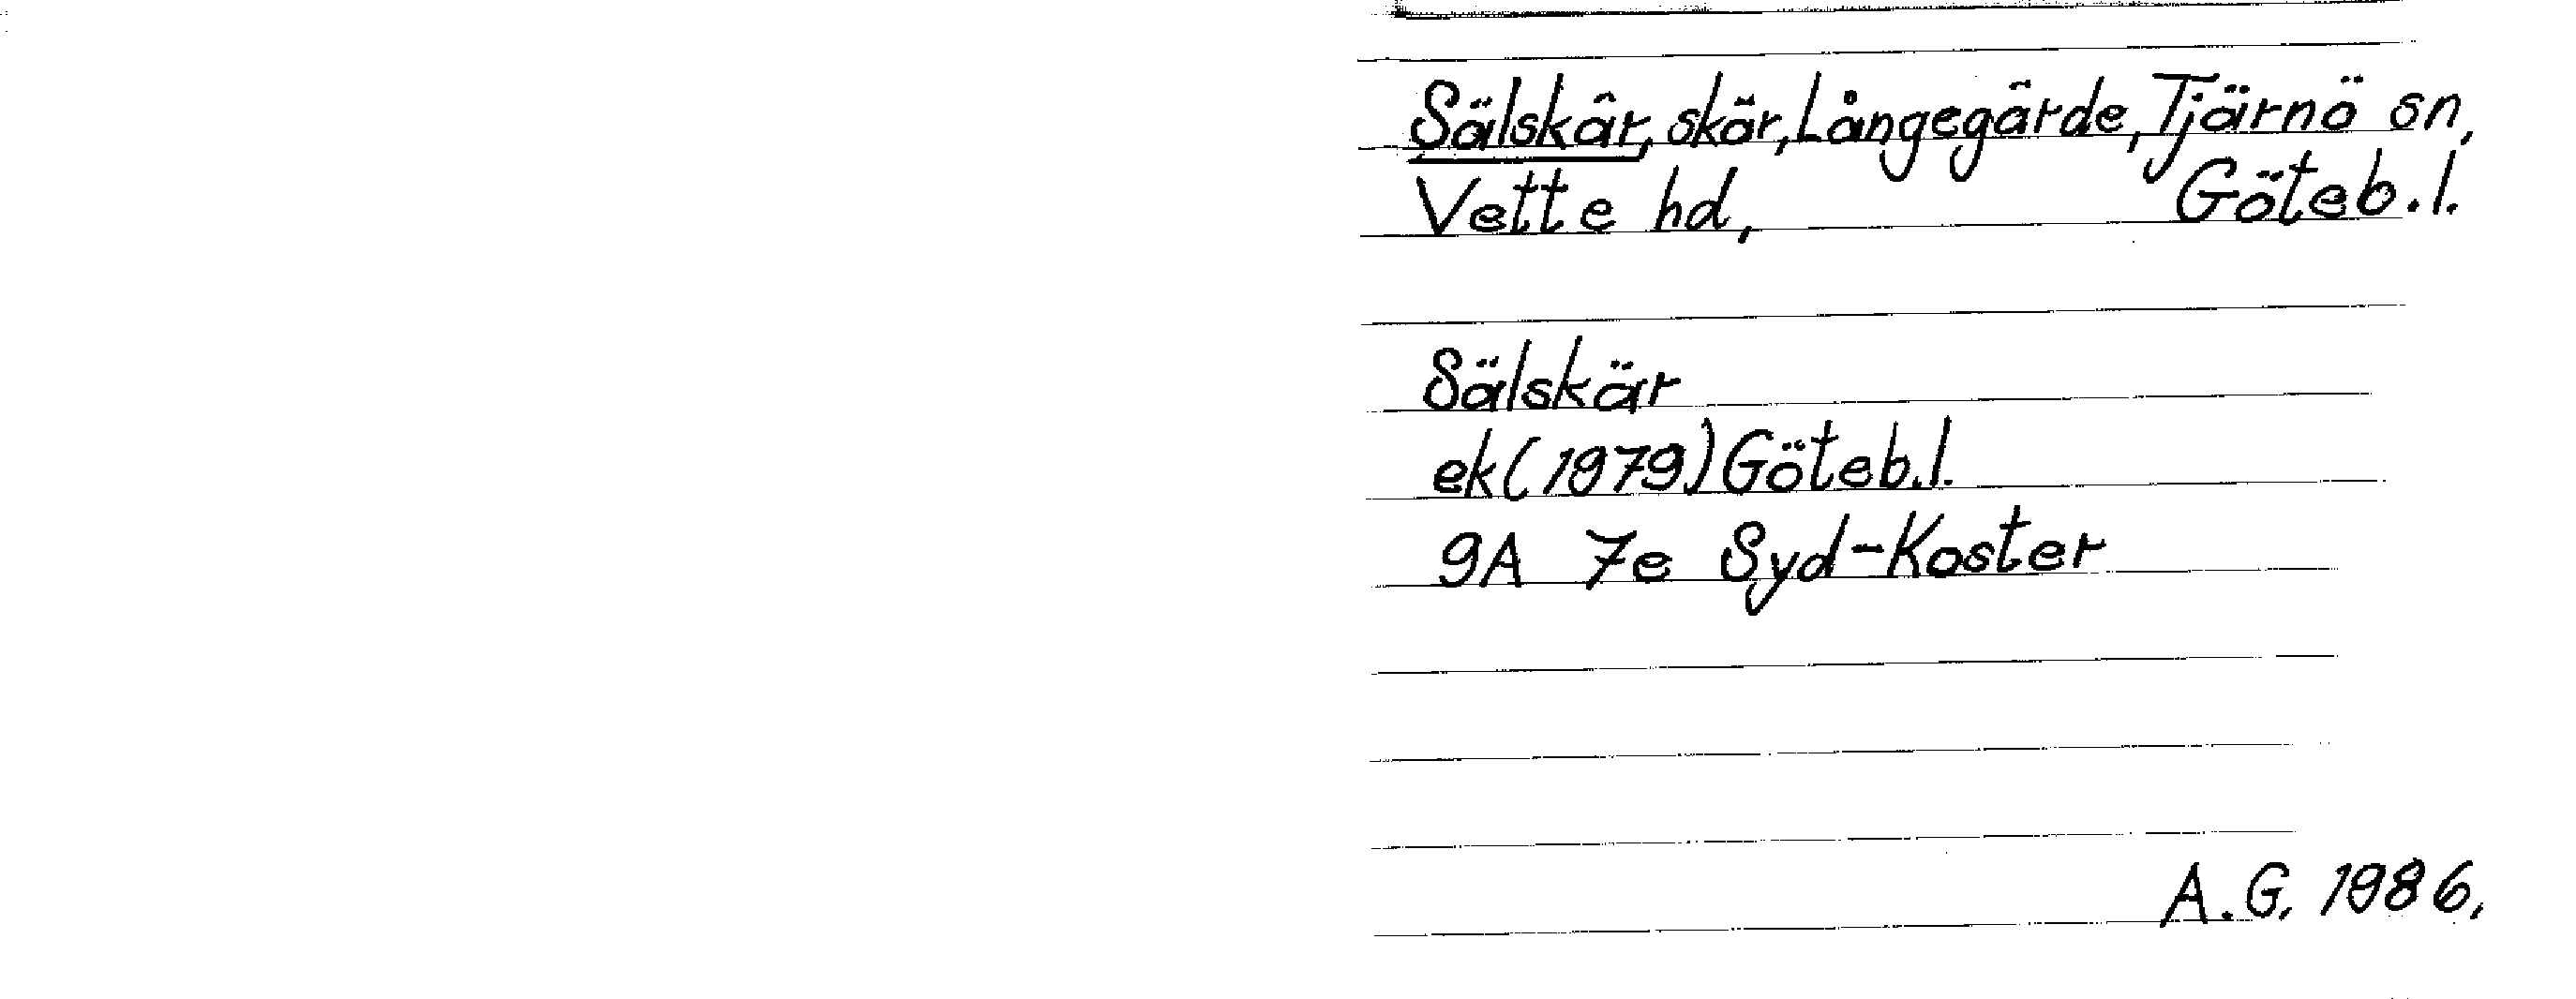 Sälskär, skär, Långegärde, Tjärnö sn,
Vette hd, Göteb.l.
Sälskär
ek (1979) Göteb.l.
9A 7e Syd-Koster
A.G. 1986.